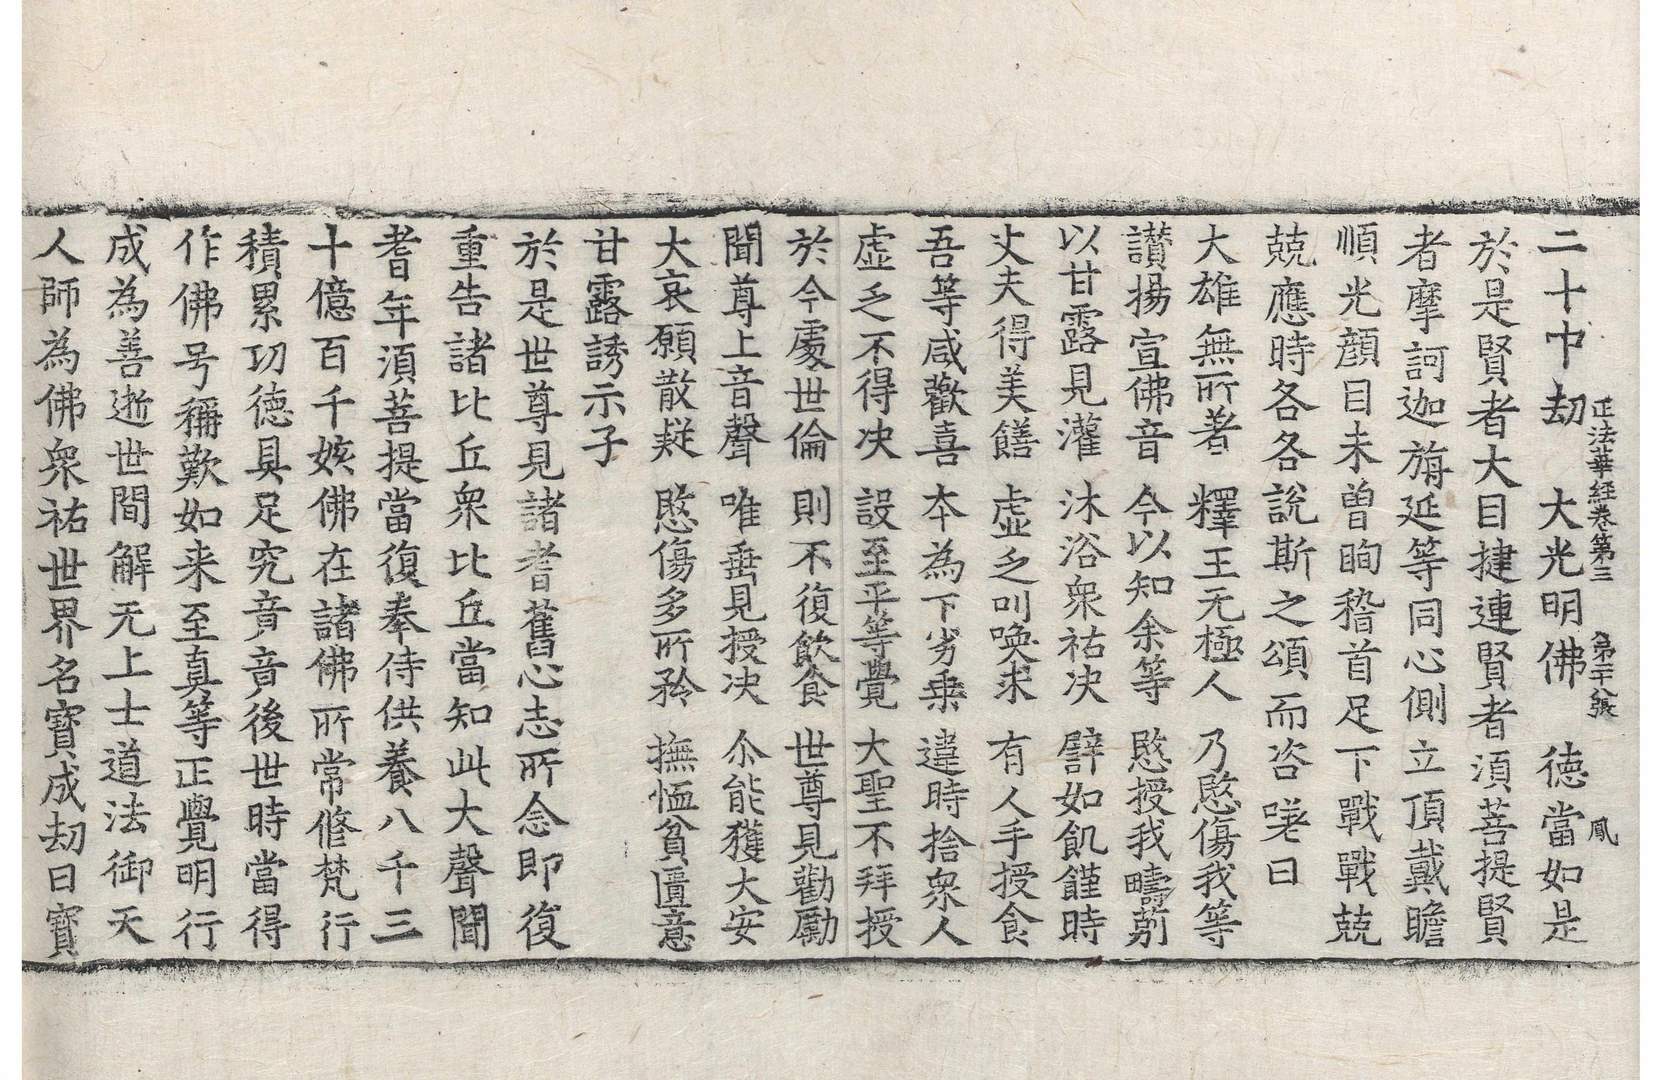 正法華經卷第三　第二十八張　鳳
二十中劫　大光明佛　德當如是
於是賢者大目揵連賢者須菩提賢
者摩訶迦旃延等同心側立頂戴瞻
順光顔目未曽眴稽首足下戰戰兢
兢應時各各說斯之頌而咨嗟曰
大雄無所著　釋王无極人　乃愍傷我等
讃揚宣佛音　今以知余等　愍授我疇莂
以甘露見灌　沐浴衆祐决　譬如飢饉時
丈夫得美饍　虚乏叫喚求　有人手授食
吾等咸歡喜　夲為下劣乗　違時捨衆人
虚乏不得决　設至平等覺　大聖不拜授
於今處世倫　則不復飲食　世尊見勸勵
聞尊上音聲　唯垂見授决　尒能獲大安
大哀願散疑　愍傷多所矜　撫恤貧匱意
甘露誘示子
於是世尊見諸耆舊心志所念即復
重告諸比丘衆比丘當知此大聲聞
耆年須菩提當復奉侍供養八千三
十億百千姟佛在諸佛所常修梵行
積累功德具足究竟竟後世時當得
作佛号稱歎如来至真等正覺明行
成為善逝世間解无上士道法御天
人師為佛衆祐世界名寶成劫曰寶